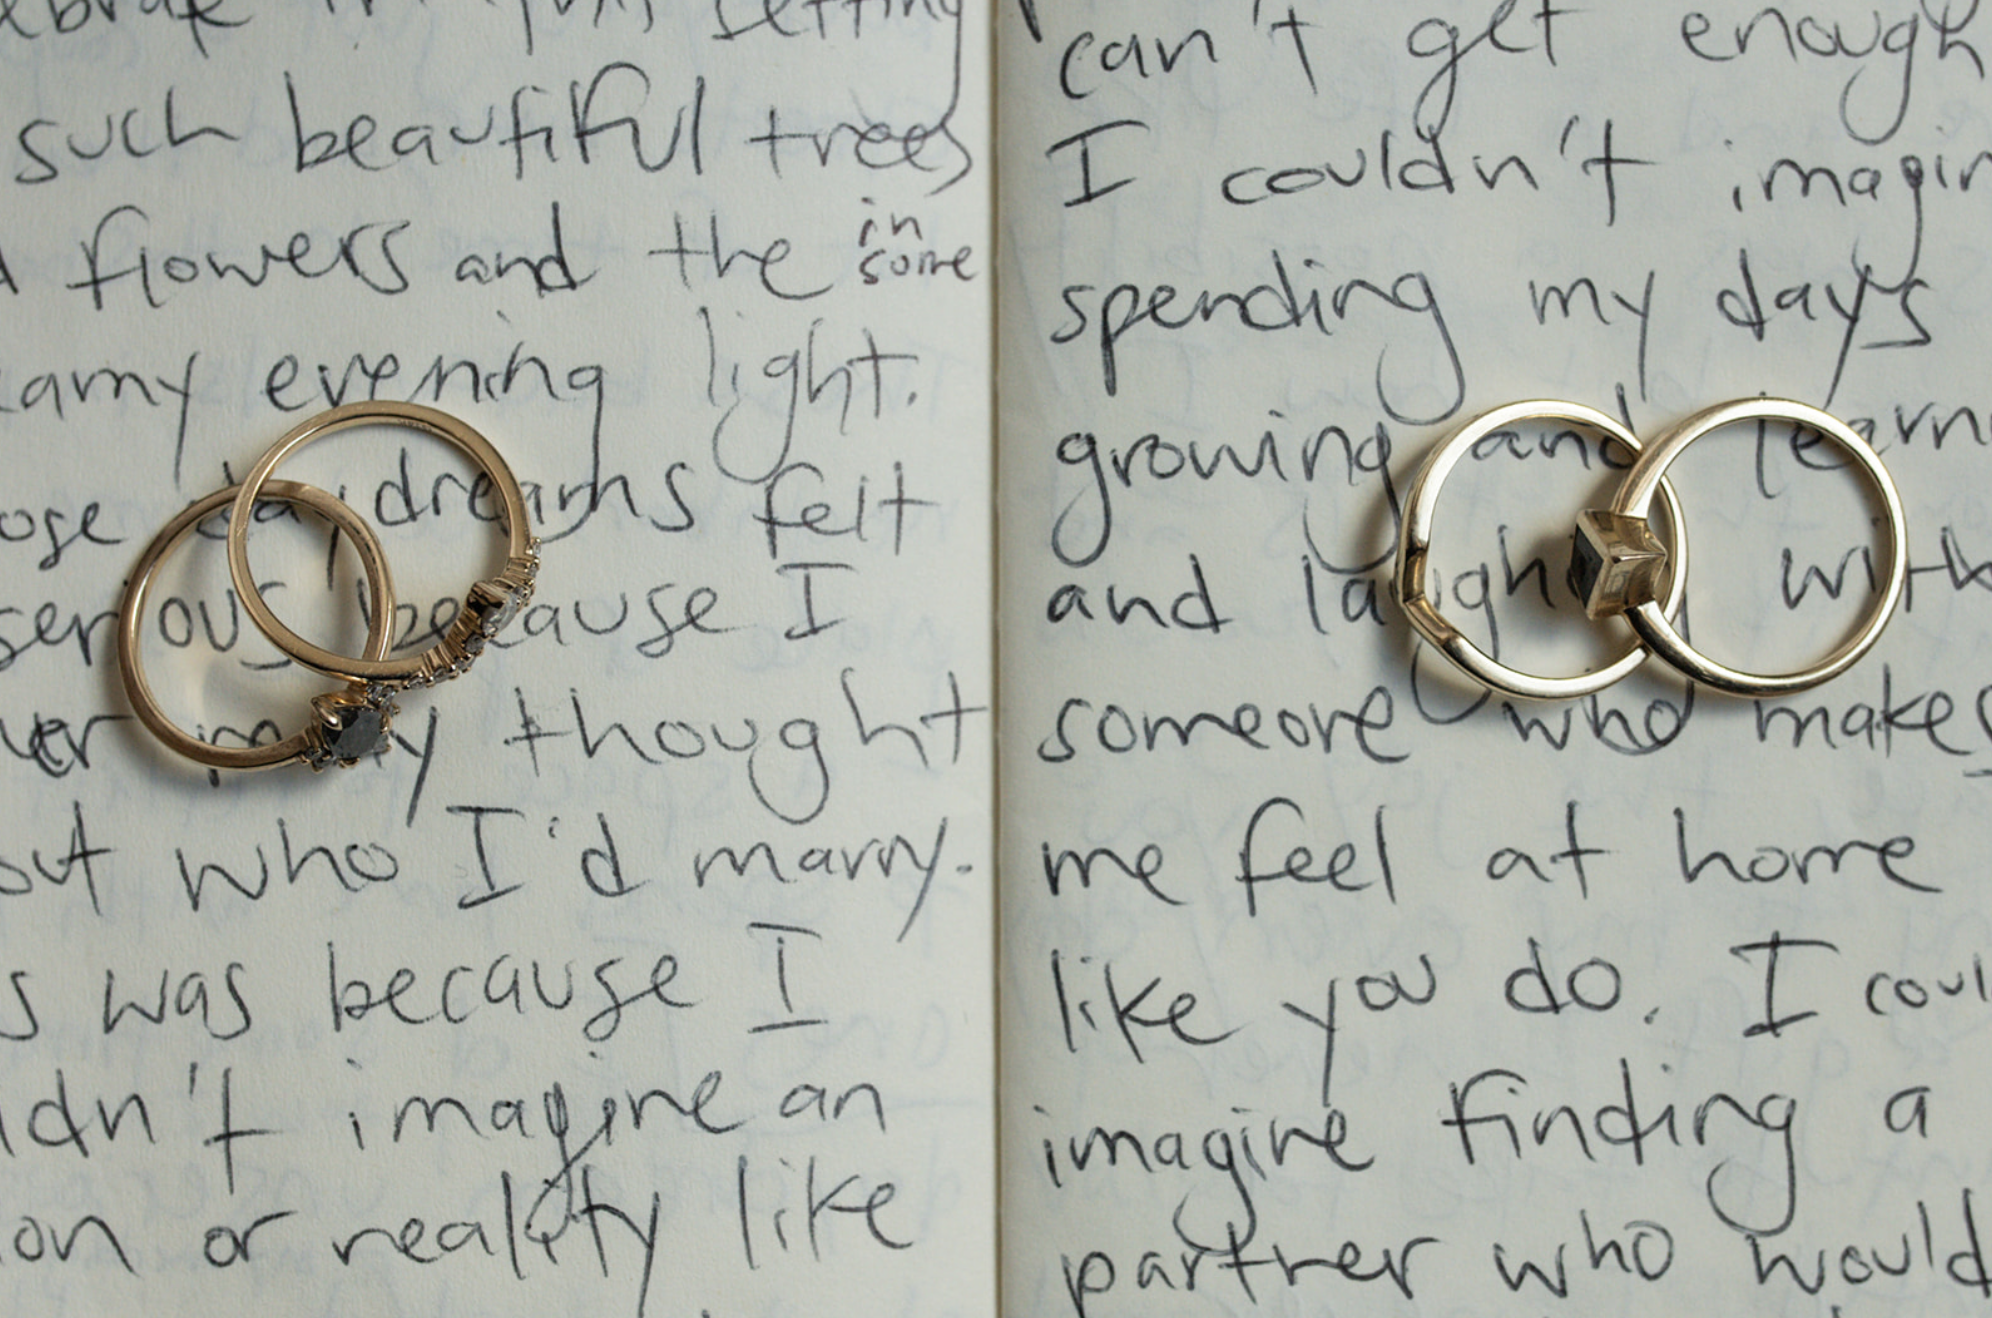 in this setting
such beautiful trees
flowers and the in some
evening light.
daydreams felt
serious because I
my thought
who I'd marry.
was because I
imagine an
or reality like
can't get enough
I couldn't imagin
spending my days
growing and learn
and laughing with
someone who makes
me feel at home
like you do. I coul
imagine finding a
partner who would